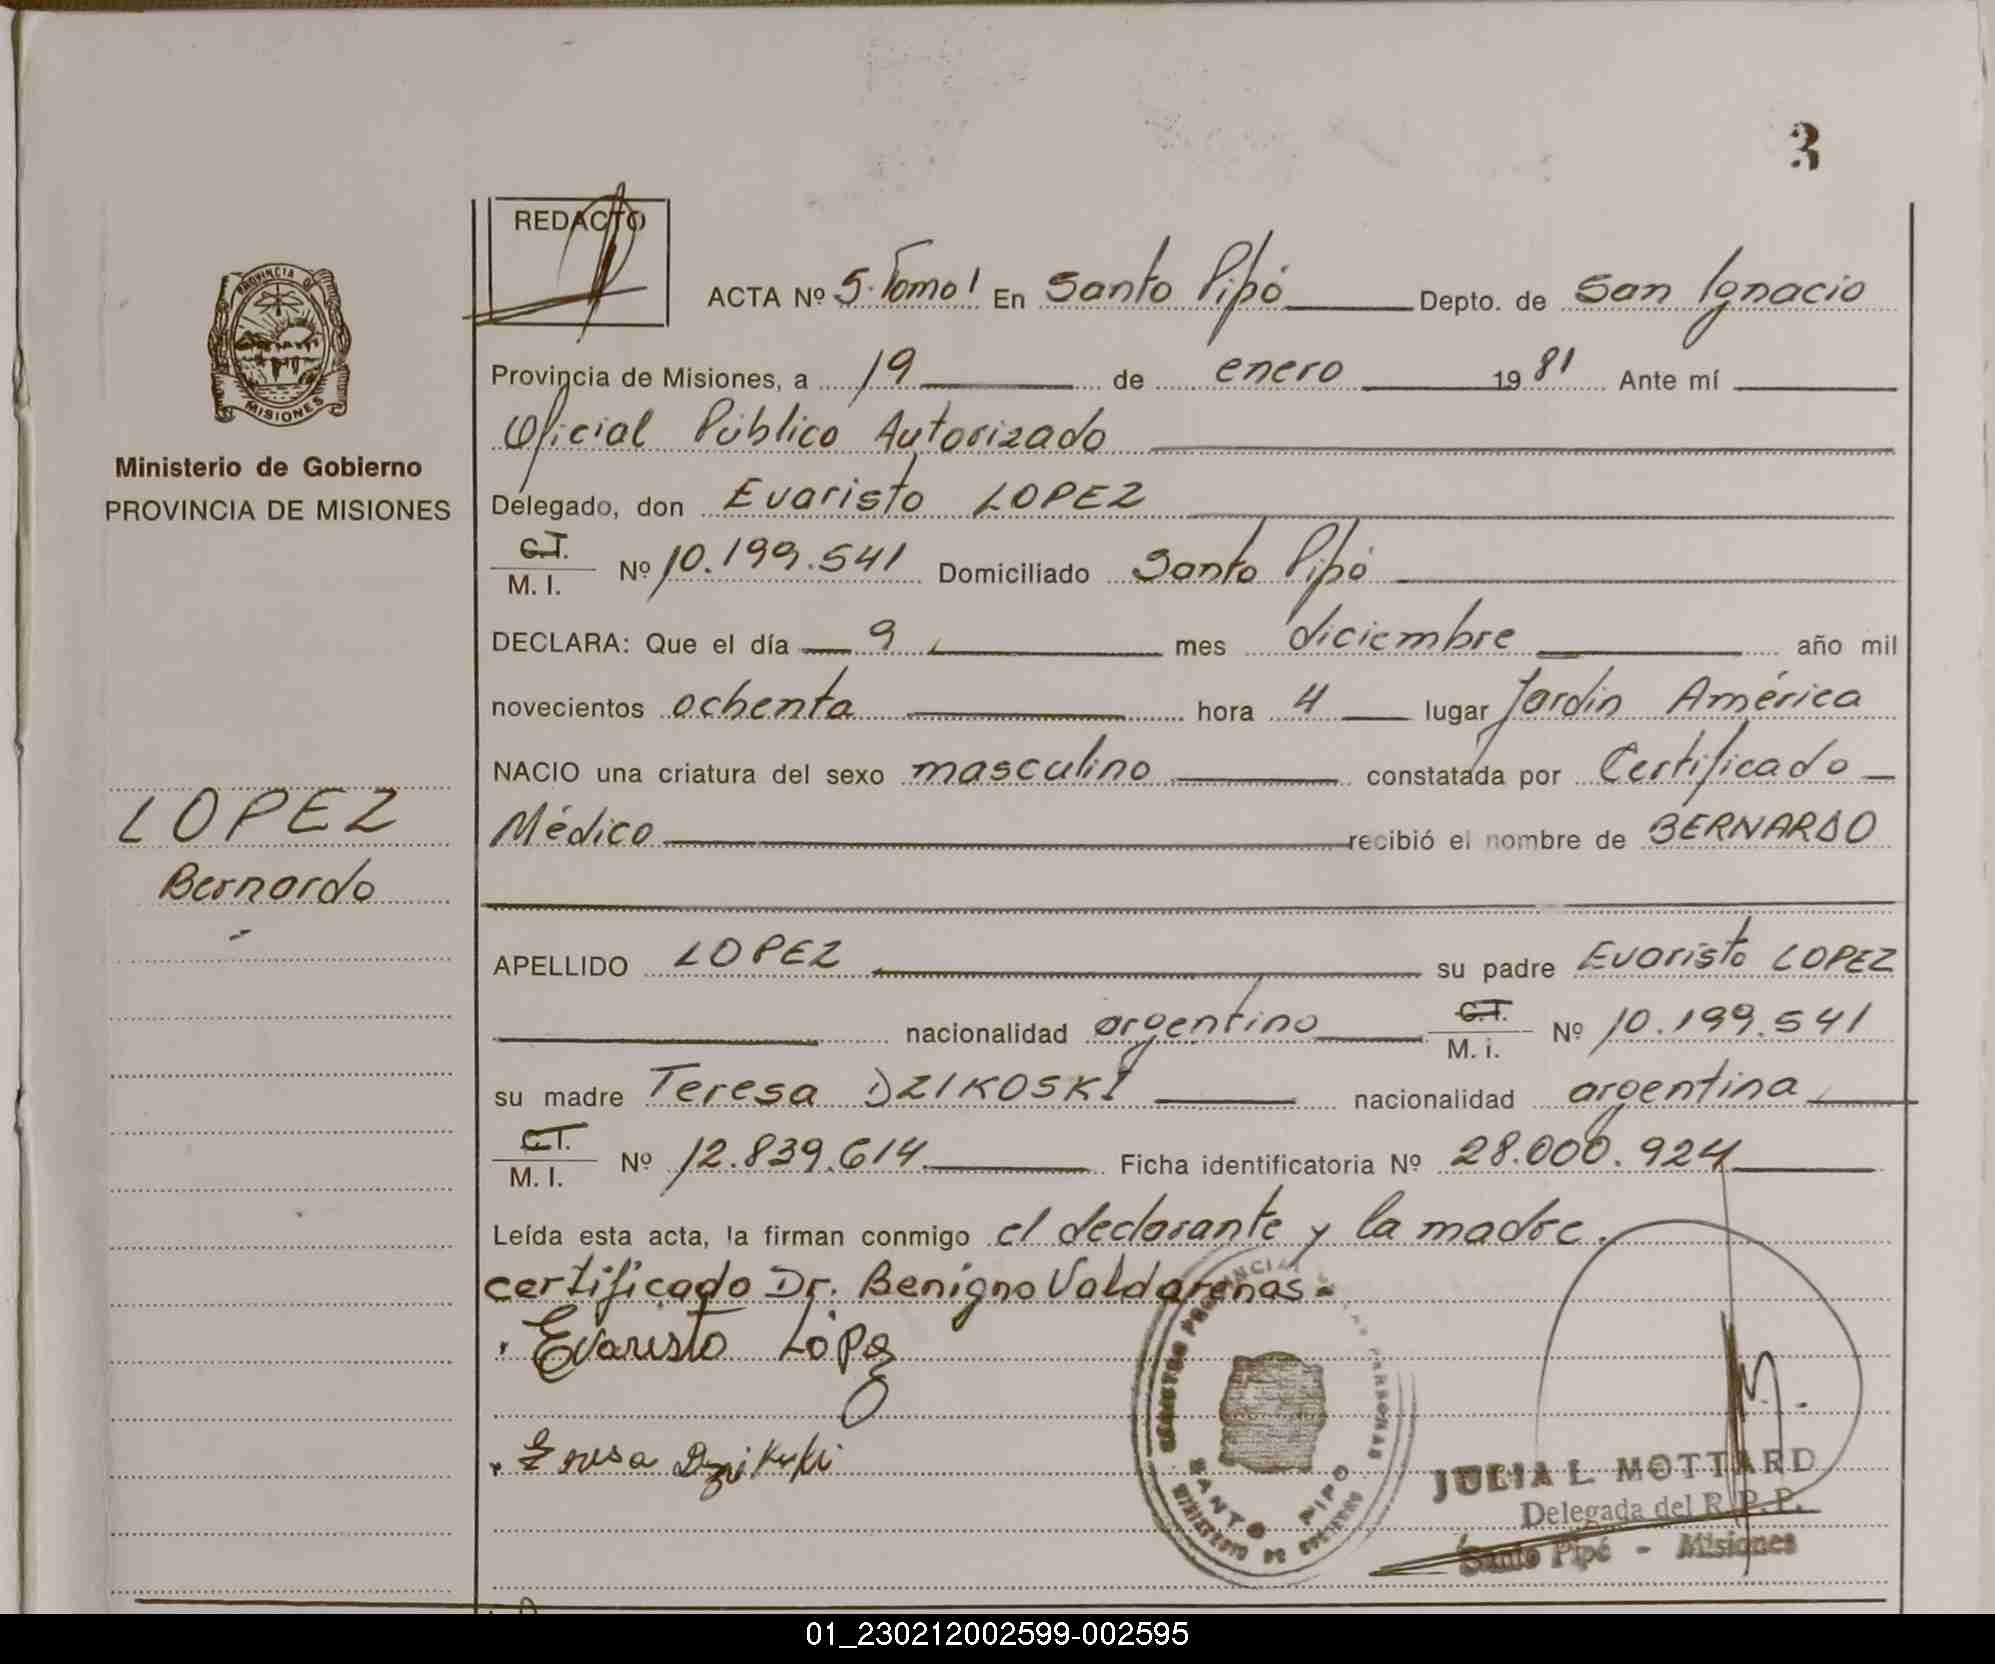 3
REDACTO
ACTA Nº 5. Tomo 1 En Santo Pipó Depto. de San Ignacio
PROVINCIA DE
MISIONES
Provincia de Misiones, a 19 de enero 1981 Ante mí
Oficial Público Autorizado
Ministerio de Gobierno
PROVINCIA DE MISIONES
Delegado, don Evaristo LOPEZ
C.T.
M. I. Nº 10.199.541 Domiciliado Santo Pipó
DECLARA: Que el día 9 mes diciembre año mil
novecientos ochenta hora 4 lugar Jardin América
NACIO una criatura del sexo masculino constatada por Certificado
LOPEZ
Bernardo
Médico recibió el nombre de BERNARDO
APELLIDO LOPEZ su padre Evaristo LOPEZ
nacionalidad argentino C.T. M. i. Nº 10.199.541
su madre Teresa DZIKOSKI nacionalidad argentina
C.T.
M. I. Nº 12.839.614 Ficha identificatoria Nº 28.000.924
Leída esta acta, la firman conmigo el declarante y la madre.
certificado Dr. Benigno Valdarenas-
Evaristo Lópe
SANTO PIPO
MINISTERIO DE GOBIERNO
JULIA L. MOTTARD
Delegada del R.P.P.
Santo Pipó - Misiones
01_230212002599-002595